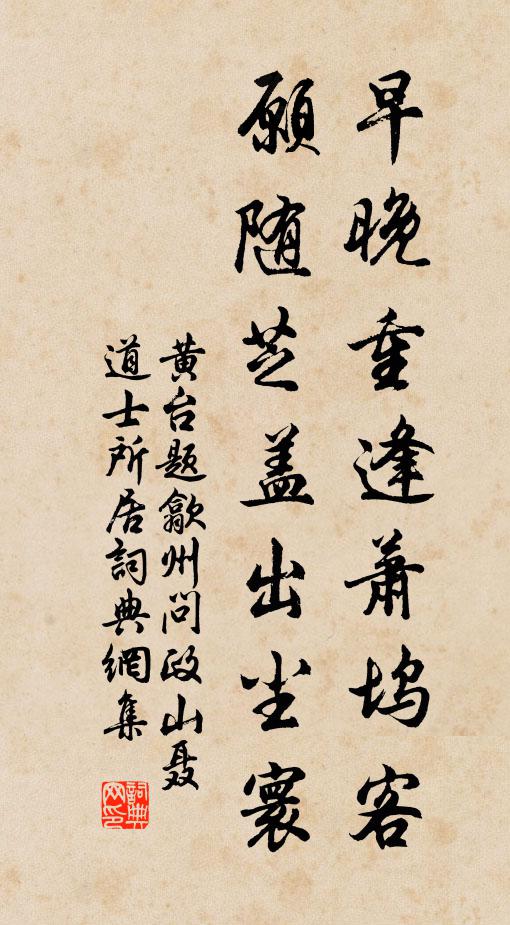 早晚重逢萧坞客
願随芝盖出尘寰
黄台题歙州问政山聂
道士所居詞典網集
詞典
网印